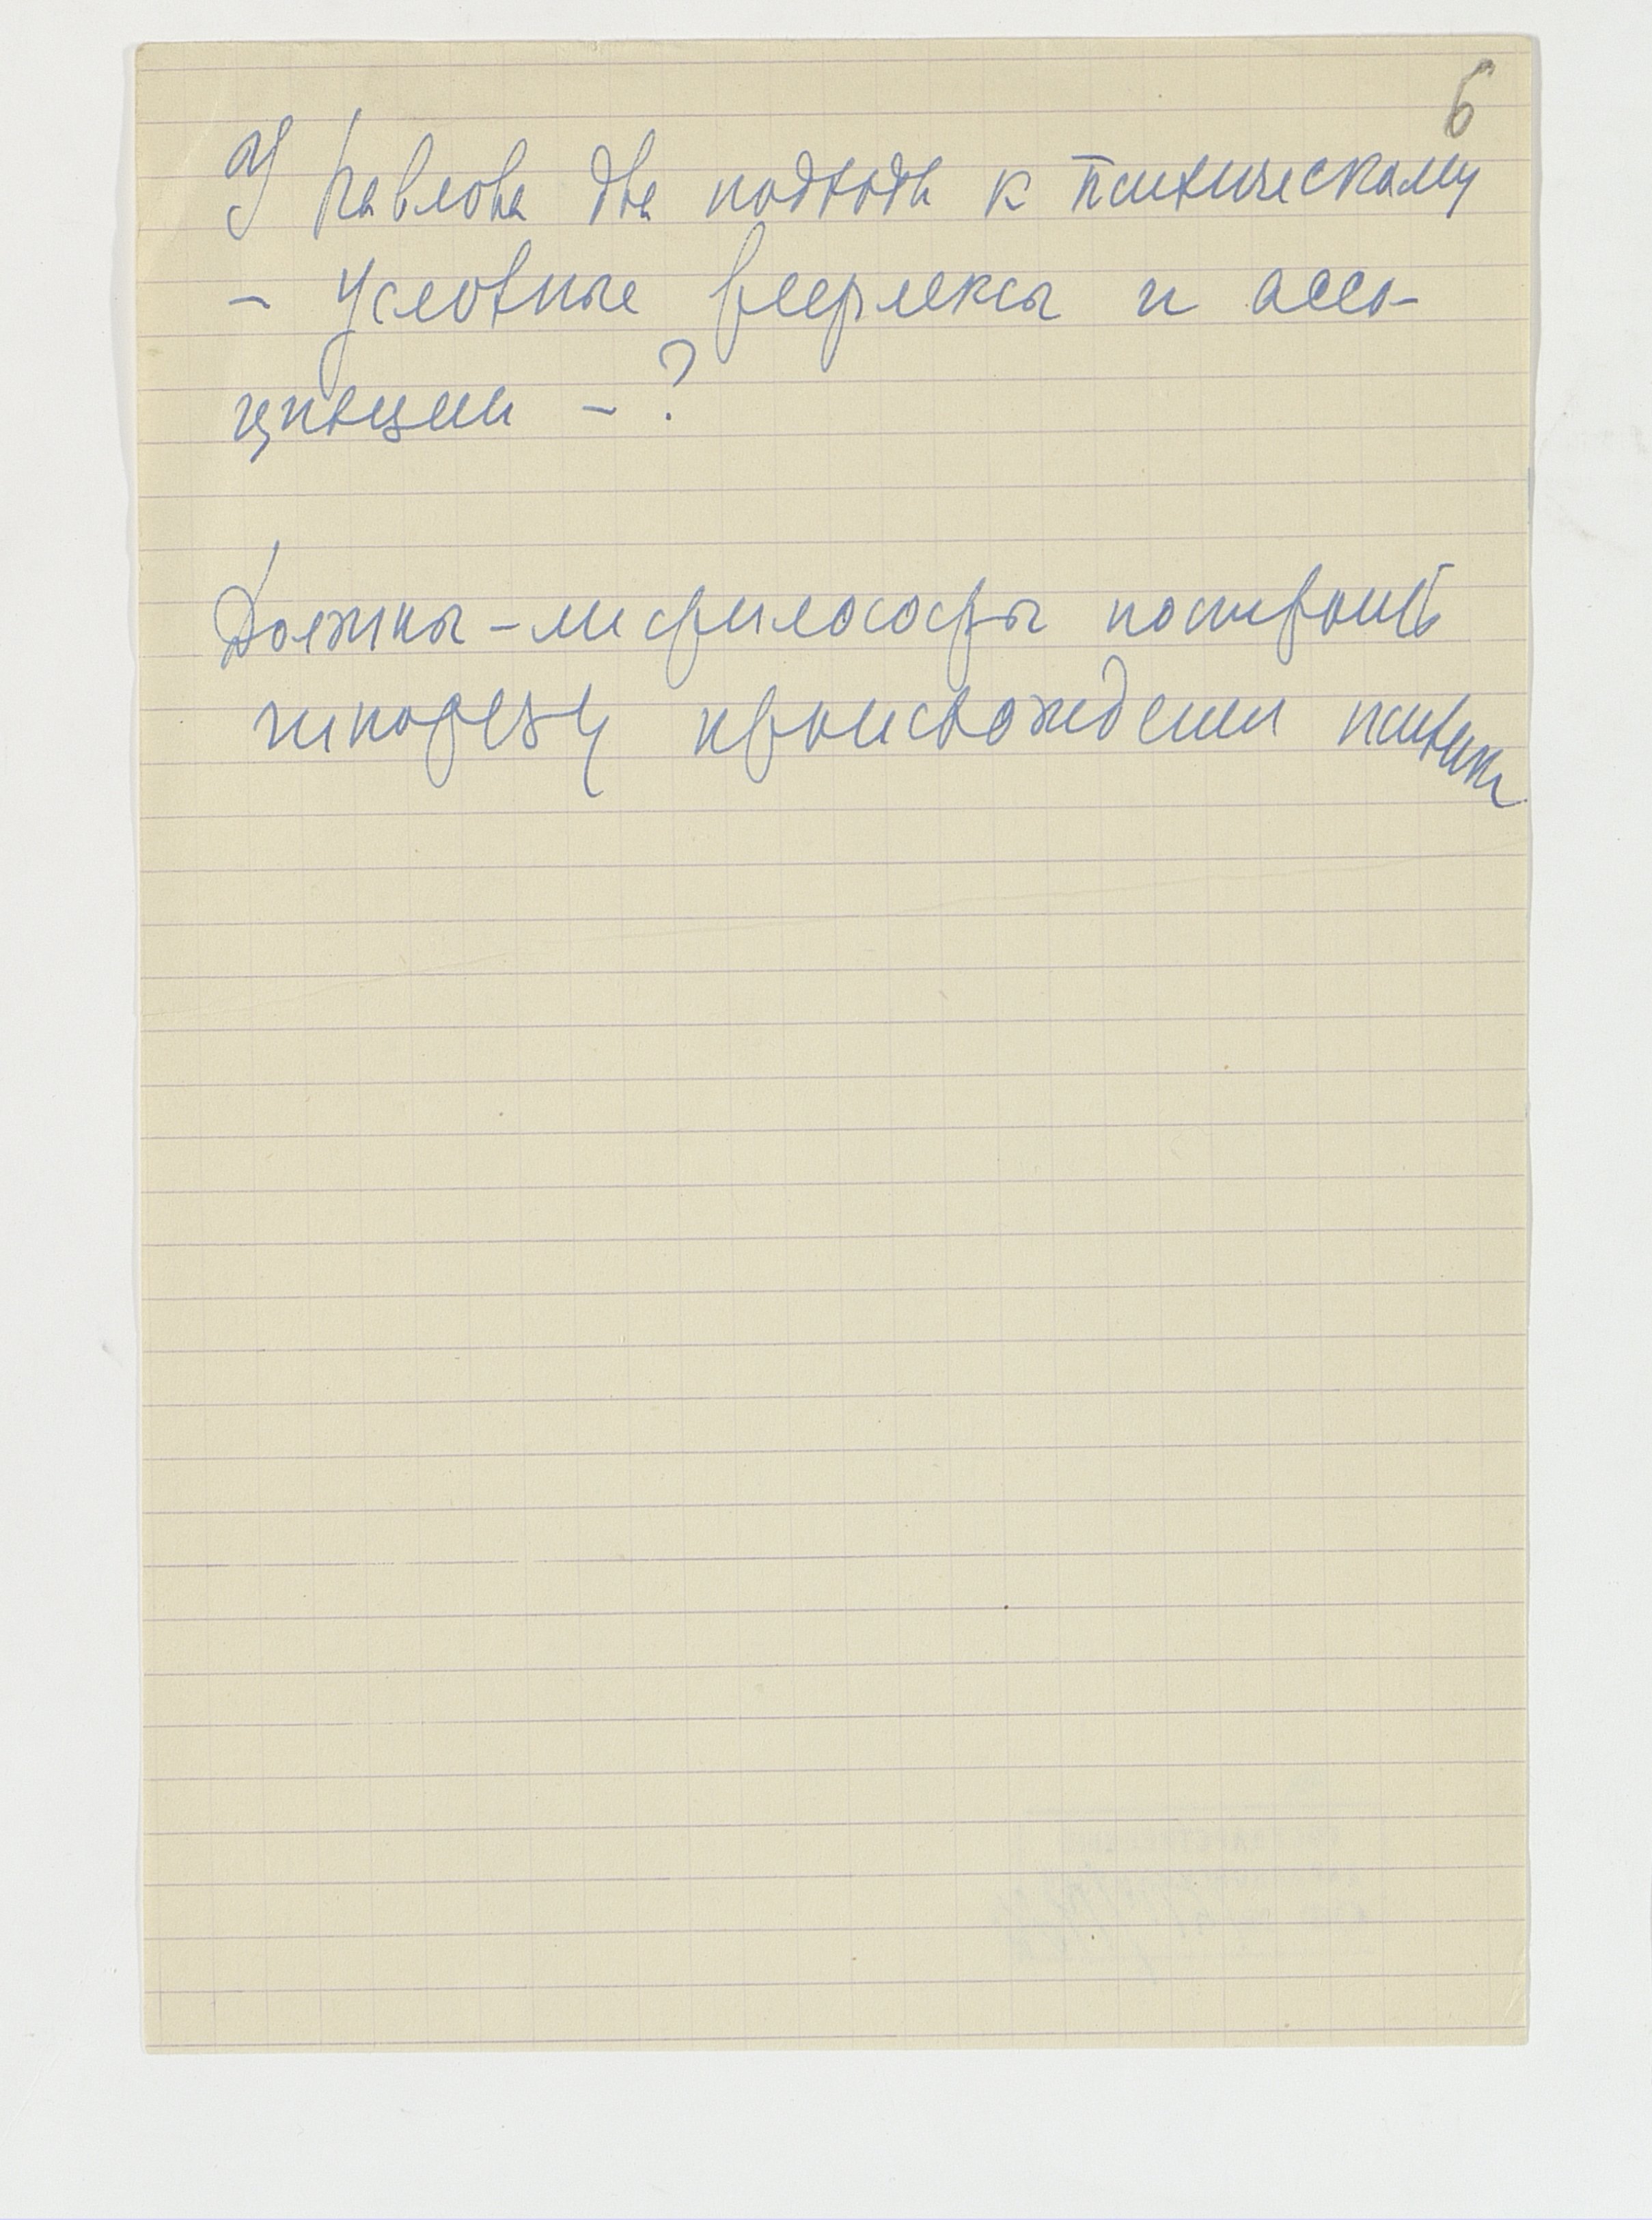 6
У Павлова два подхода к психическому
– Условные рефлексы и ассо-
циации – ?
Должны – ли философы построить
гипотезу происхождения психики